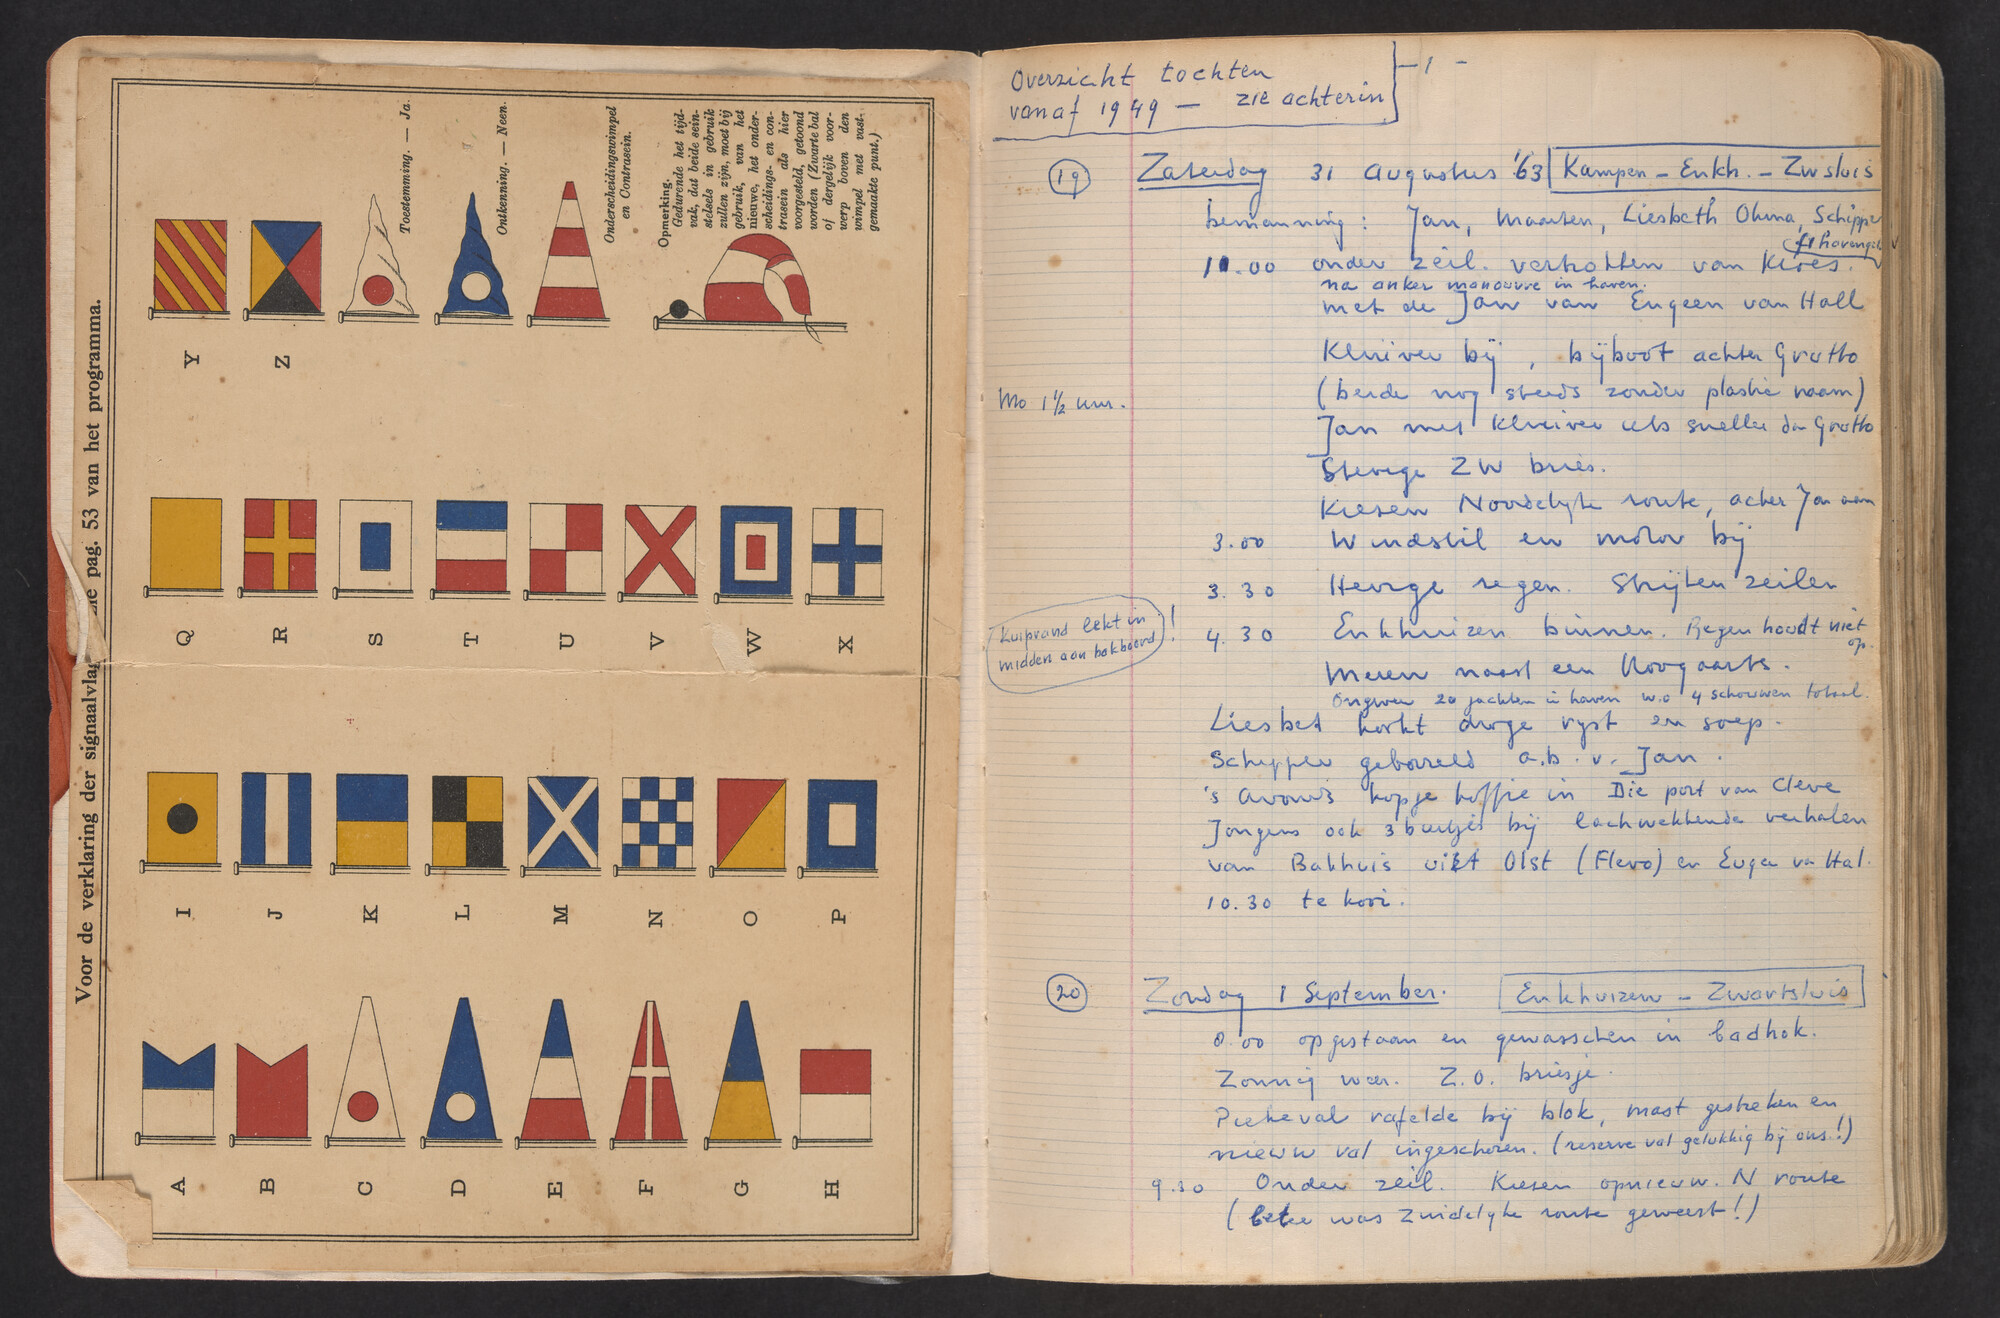 Voor de verklaring der signaalvlag pag. 53 van het programma.
Y
Z
Toestemming. — Ja.
Ontkenning. — Neen.
Onderscheidingswimpel
en Contrasein.
Opmerking.
Gedurende het tijd-
vak, dat beide sein-
stelsels in gebruik
zullen zijn, moet bij
gebruik van het
nieuwe, het onder-
scheidings- en con-
trasein als hier
voorgesteld, getoond
worden (Zwarte bal
of dergelijk voor-
werp boven den
wimpel met vast-
gemaakte punt.)
Q
R
S
T
U
V
W
X
I
J
K
L
M
N
O
P
A
B
C
D
E
F
G
H
Overzicht tochten
vanaf 1949 — zie achterin
- 1 -
19 Zaterdag 31 Augustus '63 Kampen - Enkh. - Zwsluis
bemanning: Jan, Maarten, Liesbeth Ohma, Schipper
11.00 onder zeil. vertrokken van
na anker manouvre in haven.
met de Jan van Eugeen van Hall
Kluiver bij, bijboot achter Grutto
(beide nog steeds zonder plastic naam)
Mo 1½ uur.
Jan met kluiver iets sneller dan Grutto
Stevige ZW bries.
Kiesen Noordelijke route, achter Jan aan
3.00 Windstil en motor bij
3.30 Hevige regen. Strijken zeilen
Kuiprand lekt in
midden aan bakboord!
4.30 Enkhuizen binnen. Regen houdt niet
op.
Meren naast een Hoogaarts.
Ongeveer 20 jachten in haven w.o 4 schouwen totaal.
Liesbet kookt droge ryst en soep.
Schipper geborreld a.b.v. Jan.
's Avonds kopje koffie in Die port van Cleve
Jongens ook 3 bij lachwekkende verhalen
van Bakhuis uit Olst (Flevo) en Euge van Hal.
10.30 te kooi.
20 Zondag 1 September. Enkhuizen - Zwartsluis
8.00 opgestaan en gewasschen in badhok.
Zonnig weer. Z.O. briesje.
Piekeval rafelde bij blok, mast gestreken en
nieuw val ingeschoren. (reserve val gelukkig bij ons!)
9.30 Onder zeil. Kiesen opnieuw N route
(beter was Zuidelyke route geweest!)